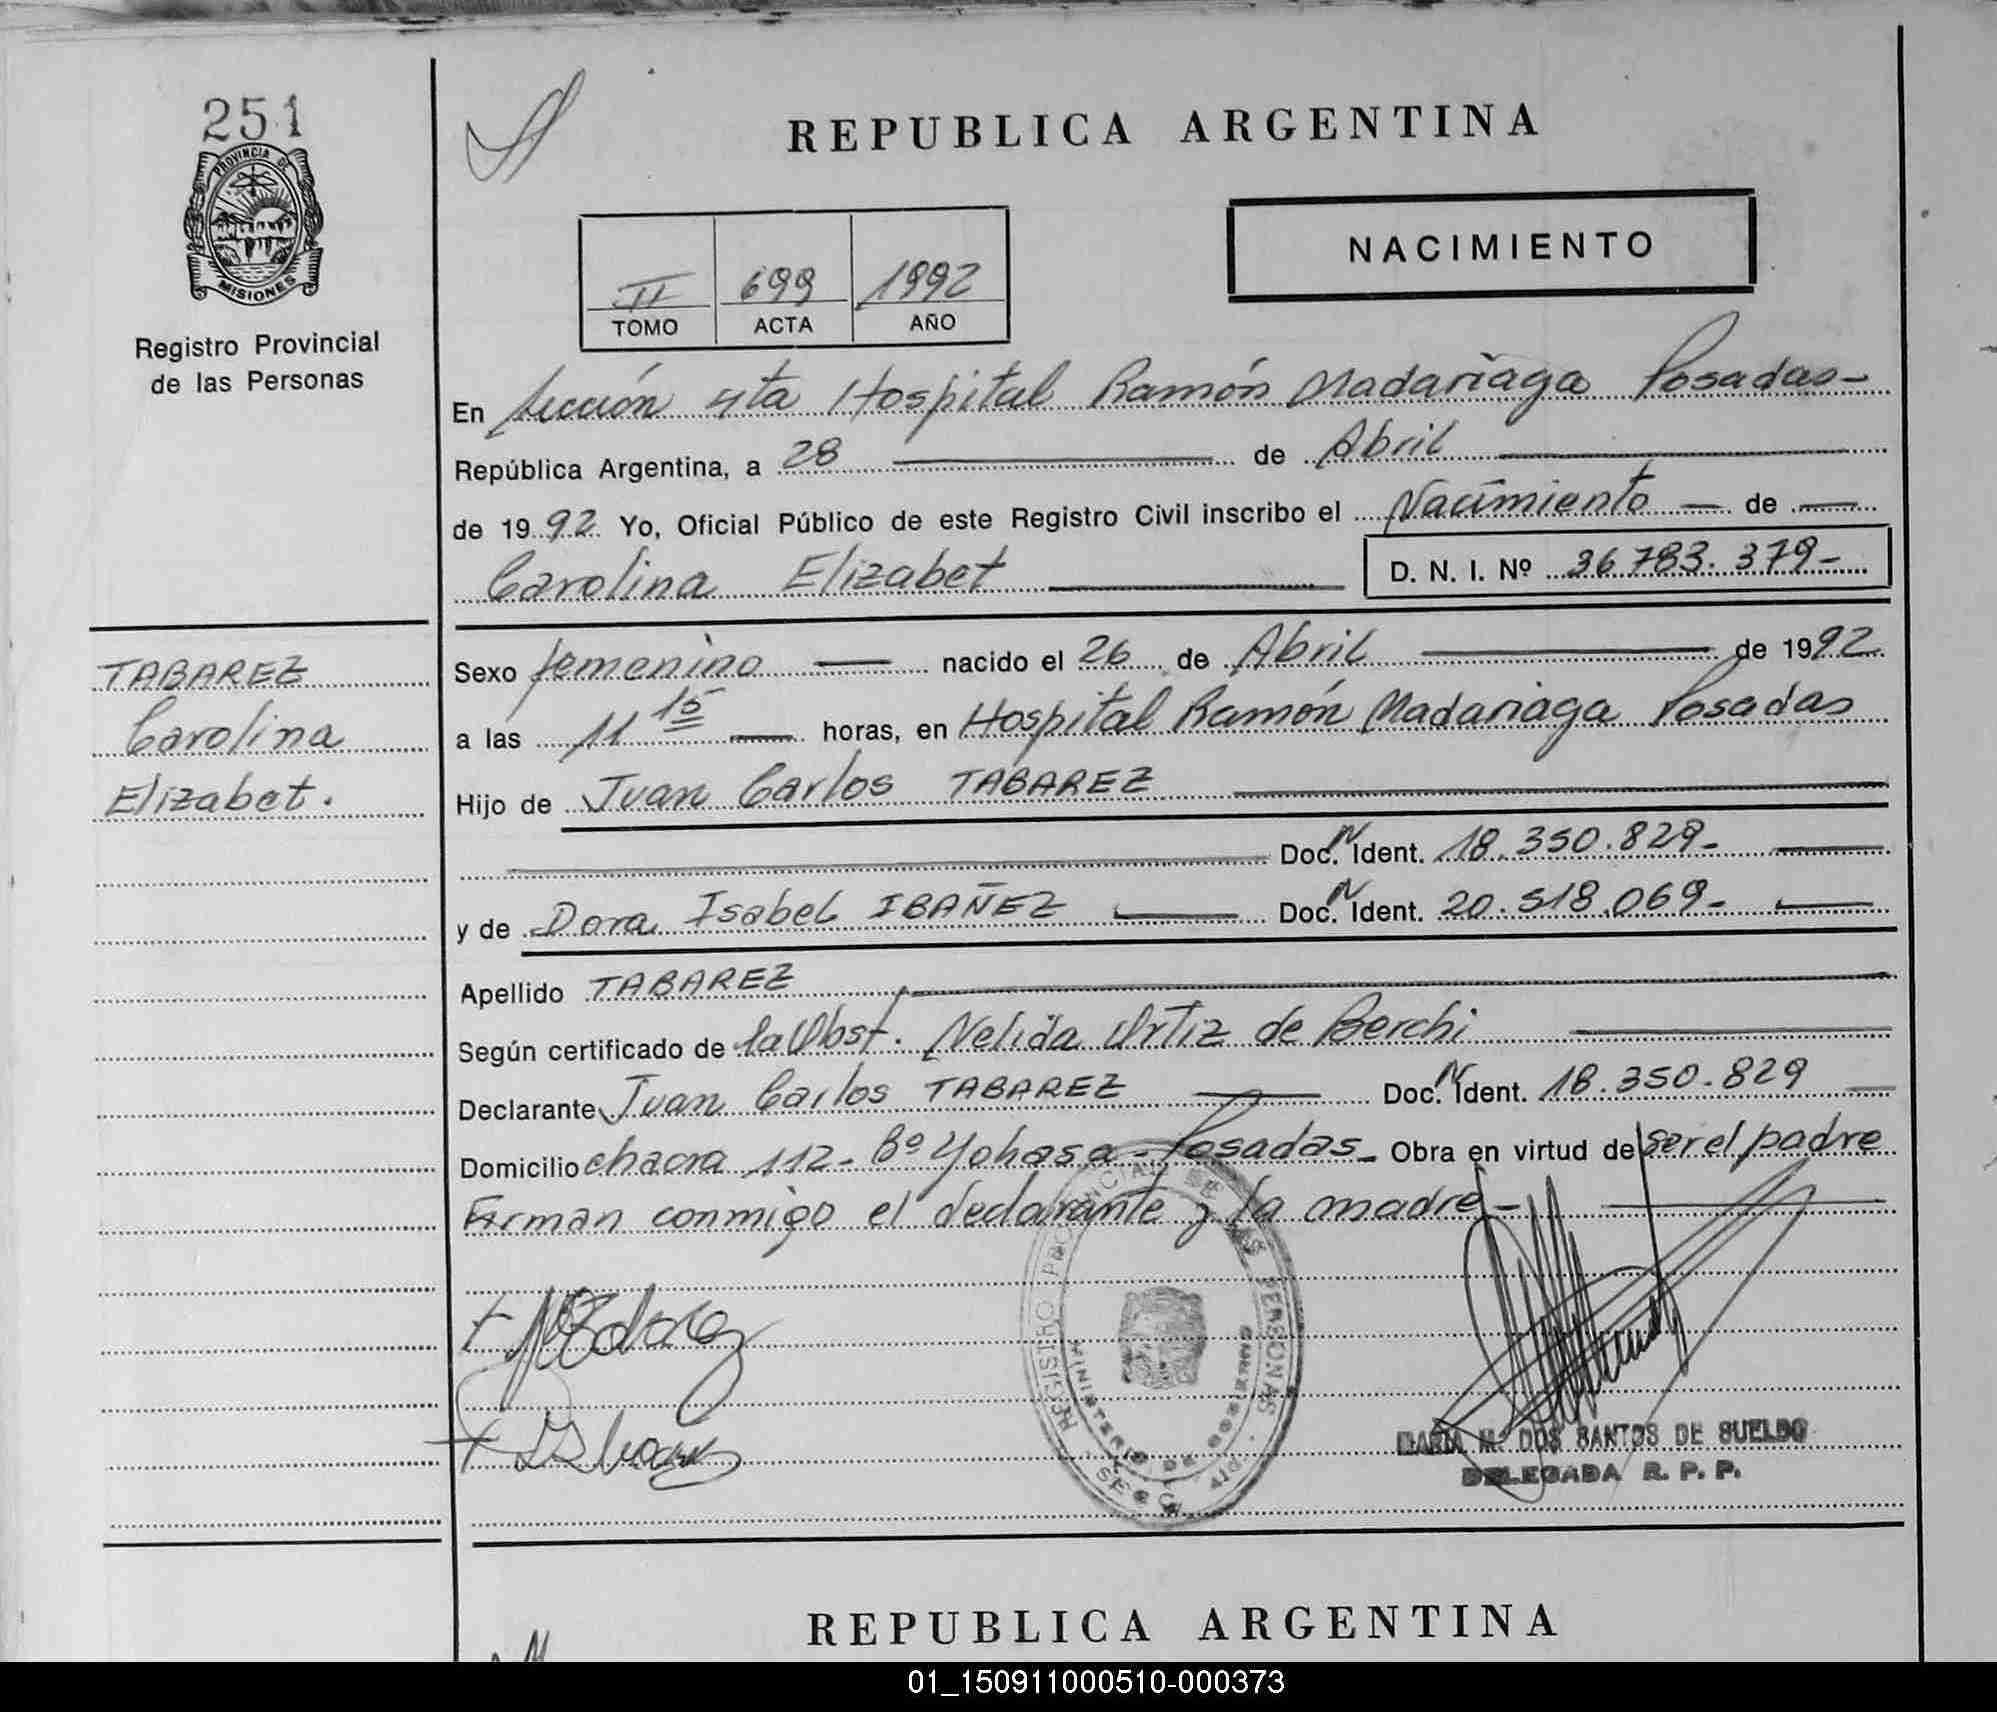 251
PROVINCIA DE
MISIONES
Registro Provincial
de las Personas
REPUBLICA ARGENTINA
NACIMIENTO
II 699 1992
TOMO ACTA AÑO
En Sección 4ta Hospital Ramón Madariaga Posadas-
República Argentina, a 28 de Abril
de 1992 Yo, Oficial Público de este Registro Civil inscribo el Nacimiento — de —
Carolina Elizabet D. N. I. Nº 36.783.379-
TABAREZ
Carolina
Elizabet.
Sexo femenino — nacido el 26 de Abril de 1992
a las 11 15 horas, en Hospital Ramón Madariaga Posadas
Hijo de Juan Carlos TABAREZ
Doc. N Ident. 18.350.829-
y de Dora Isabel IBAÑEZ Doc. N Ident. 20.518.069-
Apellido TABAREZ
Según certificado de la Obst. Nelida Ortiz de Berchi
Declarante Juan Carlos TABAREZ Doc. N Ident. 18.350.829
Domicilio chacra 112- Bº Yohasa- Posadas- Obra en virtud de Ser el padre
Firman conmigo el declarante y la madre-
REGISTRO PROVINCIAL DE LAS PERSONAS
MINISTERIO DE GOBIERNO
MARIA M. DOS SANTOS DE SUELDO
DELEGADA R. P. P.
REPUBLICA ARGENTINA
01_150911000510-000373